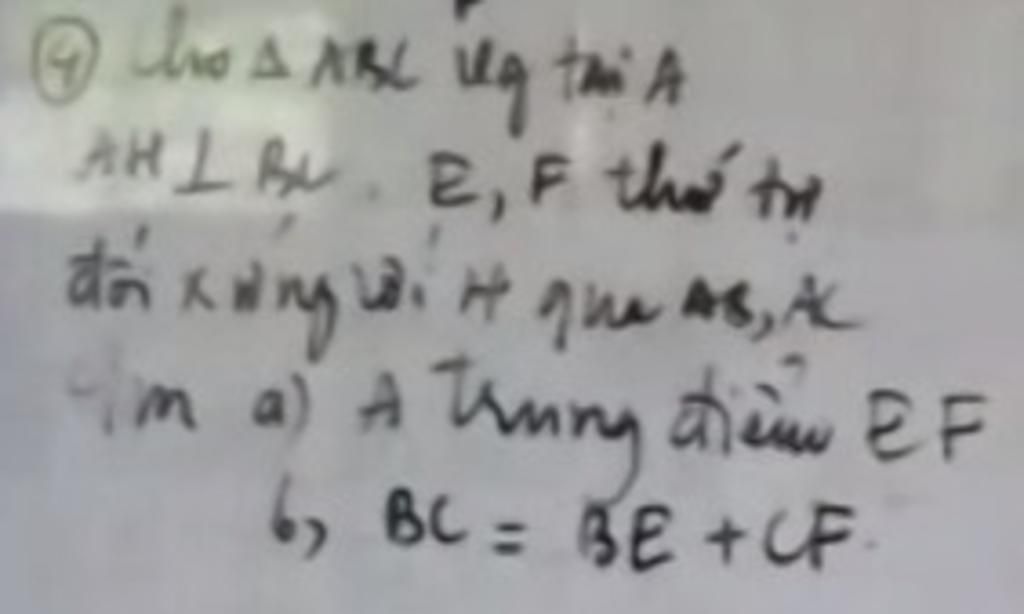 ④ Cho Δ ABC vg tại A
AH ⊥ BC. E, F thứ tự
đối xứng với H qua AB, AC
C/m a) A trung điểm EF
b, BC = BE + CF.